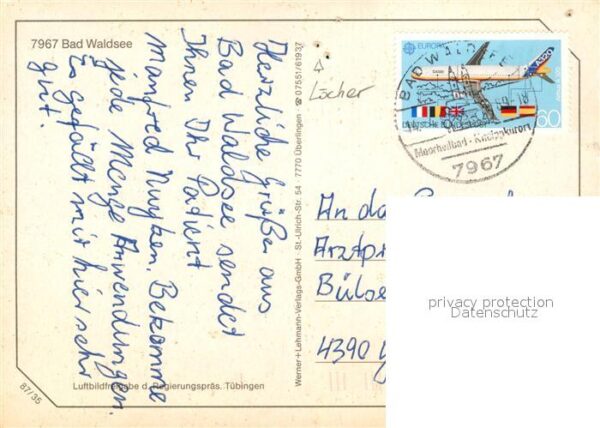 7967 Bad Waldsee
Herzliche Grüße aus
Bad Waldsee sendet
Ihnen Ihr Patient
Manfred Nuyken. Bekomme
jede Menge Anwendungen.
Es gefällt mir hier sehr
gut!
Luftbildfreigabe d. Regierungspräs. Tübingen
87/35
Werner+Lehmann-Verlags-GmbH · St.-Ulrich-Str. 54 · 7770 Überlingen · ☎ 07551/61937
4 Löcher
EUROPA
A320
60
BAD WALDSEE
Moorheilbad - Kneippkurort
7967
An da
Arztpr
Bülse
4390
privacy protection
Datenschutz